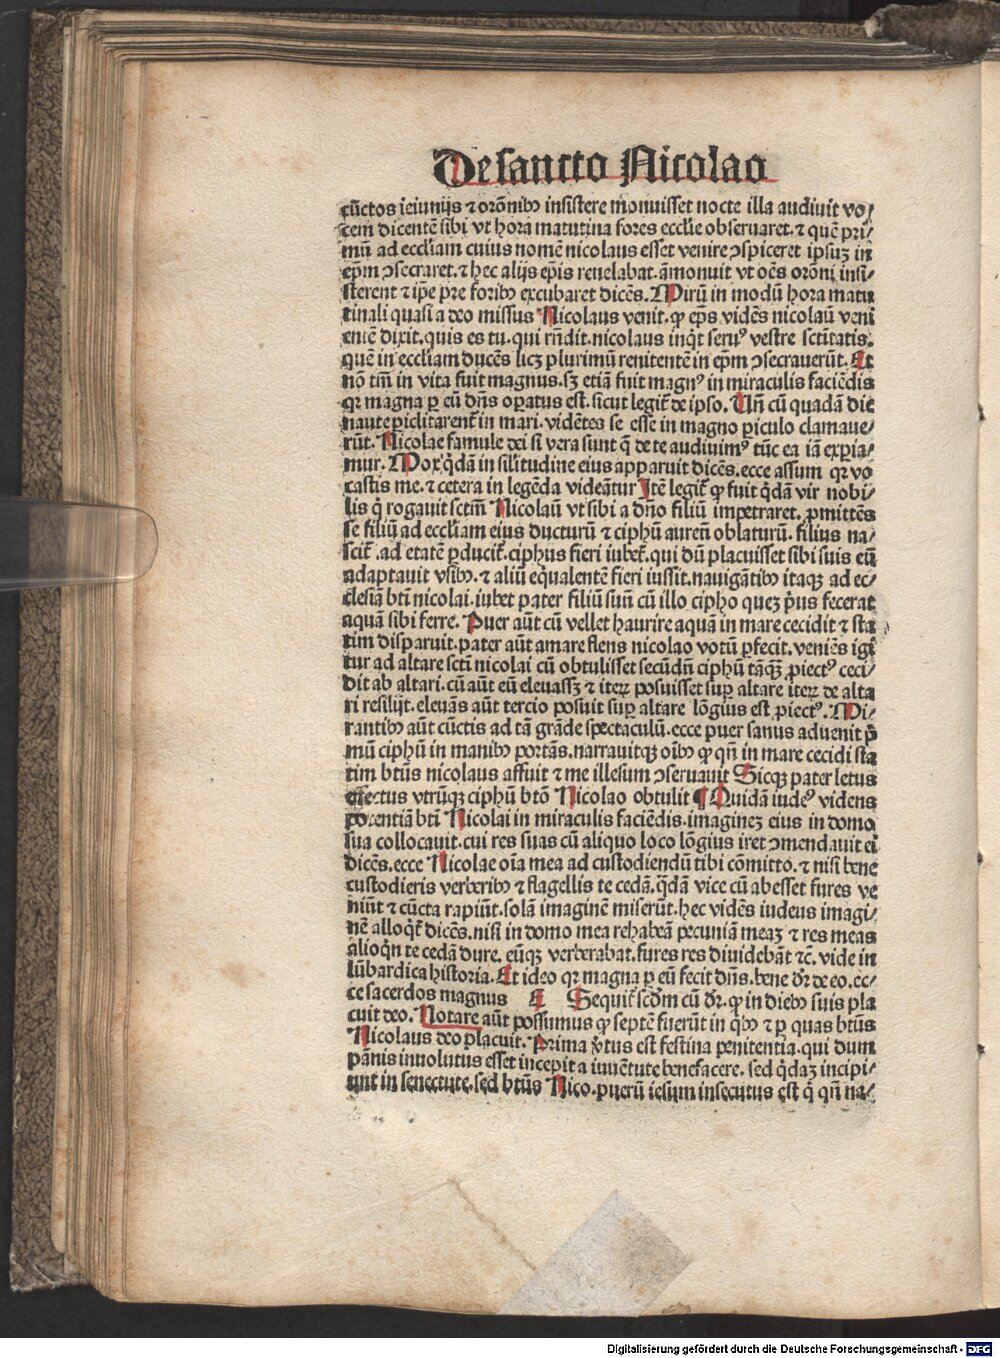 De sancto Nicolao
cūctos ieiunijs ⁊ orōnibꝰ insistere monuisset nocte illa audiuit vo⸗
cem dicentē sibi vt hora matutina fores ecclie obseruaret. ⁊ quē pri⸗
mū ad eccliam cuius nomē nicolaus esset venire ↄspiceret ipsuꝫ in
epm̄ ↄsecraret. ⁊ hec alijs epīs reuelabat. āmonuit vt oēs orōni insi⸗
sterent ⁊ ip̄e pre foribꝰ excubaret dicēs. Mirū in modū hora matu
tinali quasi a deo missus Nicolaus venit. ꝙ ep̄s vidēs nicolaū veni
entē dixit. quis es tu. qui rn̄dit. nicolaus inqͥt seruꝰ vestre sctītatis.
quē in eccliam ducēs licꝫ plurimū renitentē in epm̄ ↄsecrauerūt. Et
nō tm̄ in vita fuit magnus. sꝫ etiā fuit magnꝰ in miraculis faciēdis
qꝛ magna ꝑ eū dn̄s oꝑatus est. sicut legit̄ de ipso. Un̄ cū quadā die
naute ꝑiclitarent̄ in mari. vidētes se esse in magno ꝑiculo clamaue⸗
rūt. Nicolae famule dei si vera sunt q̄ de te audiuimꝰ tūc ea iā exꝑia⸗
mur. Mox qͥdā in silitudine eius apparuit dicēs. ecce assum qꝛ vo
castis me. ⁊ cetera in legēda videātur Itē legit̄ ꝙ fuit qͥdā vir nobi⸗
lis qͥ rogauit sctm̄ Nicolaū vt sibi a dn̄o filiū impetraret. ꝓmittēs
se filiū ad eccliam eius ducturū ⁊ ciphū aureū oblaturū. filius na⸗
scit̄. ad etatē ꝑducit̄. ciphus fieri iubet̄. qui dū placuisset sibi suis eū
adaptauit vsibꝰ. ⁊ aliū eq̄ualentē fieri iussit. nauigātibꝰ itaqꝫ ad ec⸗
clesiā btī nicolai. iubet pater filiū suū cū illo cipho queꝫ pͥus fecerat
aquā sibi ferre. Puer aūt cū vellet haurire aquā in mare cecidit ⁊ sta
tim disparuit. pater aūt amare flens nicolao votū ꝑfecit. veniēs igi
tur ad altare sctī nicolai cū obtulisset secūdū ciphū tāqꝫ ꝓiectꝰ ceci⸗
dit ab altari. cū aūt eū eleuassꝫ ⁊ iteꝝ posuisset suꝑ altare iteꝝ de alta
ri resilijt. eleuās aūt tercio posuit suꝑ altare lōgius est ꝓiectꝰ. Mi⸗
rantibꝰ aūt cūctis ad tā grāde spectaculū. ecce puer sanus aduenit pͥ
mū ciphū in manibꝰ portās. narrauitqꝫ oībꝰ ꝙ qn̄ in mare cecidi sta
tim btūs nicolaus affuit ⁊ me illesum ↄseruauit Sicqꝫ pater letus
effectus vtrūqꝫ ciphū btō Nicolao obtulit ¶ Quidā iudeꝰ videns
potentiā btī Nicolai in miraculis faciēdis. imagineꝫ eius in domo
sua collocauit. cui res suas cū aliquo loco lōgius iret ↄmendauit ei
dicēs. ecce Nicolae oīa mea ad custodiendū tibi cōmitto. ⁊ nisi bene
custodieris verberibꝰ ⁊ flagellis te cedā. qͥdā vice cū abesset fures ve
niūt ⁊ cūcta rapiūt. solā imaginē miserūt. hec vidēs iudeus imagi⸗
nē alloqͥt̄ dicēs. nisi in domo mea rehabeā pecuniā meaꝫ ⁊ res meas
alioqͥn te cedā dure. eūqꝫ verberabat. fures res diuidebāt ⁊c̄. vide in
lūbardica historia. Et ideo qꝛ magna ꝑ eū fecit dn̄s. bene dr̄ de eo. ec⸗
ce sacerdos magnus ¶ Sequit̄ scd̄m cū dr̄. ꝙ in diebꝰ suis pla
cuit deo. Notare aūt possumus ꝙ septē fuerūt in qͥbꝰ ⁊ ꝑ quas btūs
Nicolaus deo placuit. Prima v̓tus est festina penitentia. qui dum
pānis inuolutus esset incepit a iuuētute benefacere. sed qͥdaꝫ incipi⸗
unt in senectute. sed btūs Nico. puerū iesum insecutus est qͥ qn̄ na⸗
Digitalisierung gefördert durch die Deutsche Forschungsgemeinschaft - DFG